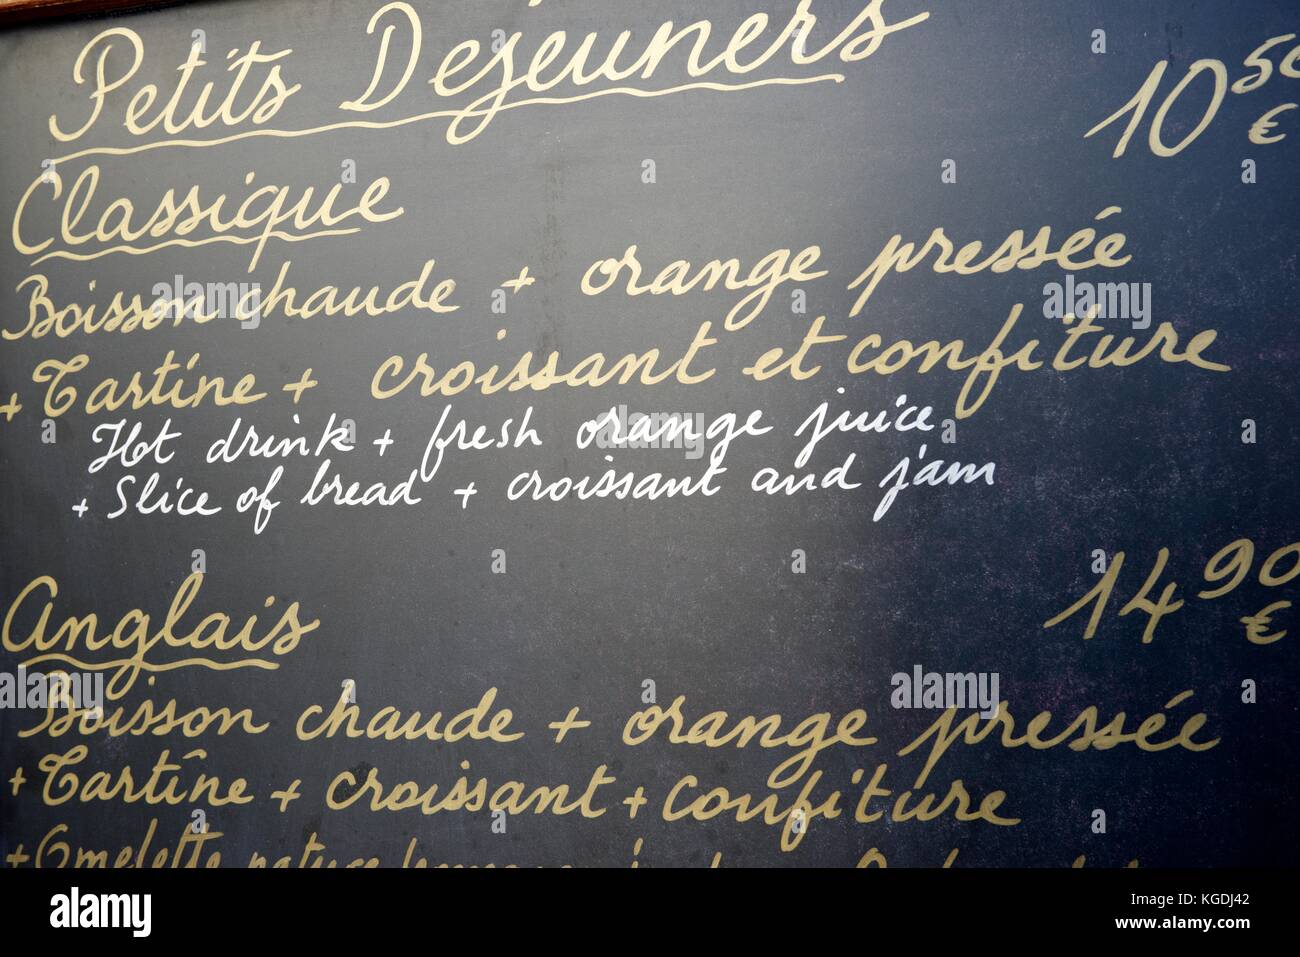 Petits Dejeuners
Classique 10 50 €
Boisson chaude + orange pressée
+ Tartine + croissant et confiture
Hot drink + fresh orange juice
+ Slice of bread + croissant and jam
Anglais 14 90 €
Boisson chaude + orange pressée
+ Tartine + croissant + confiture
+ Omelette nature
alamy
Image ID: KGDJ42
www.alamy.com